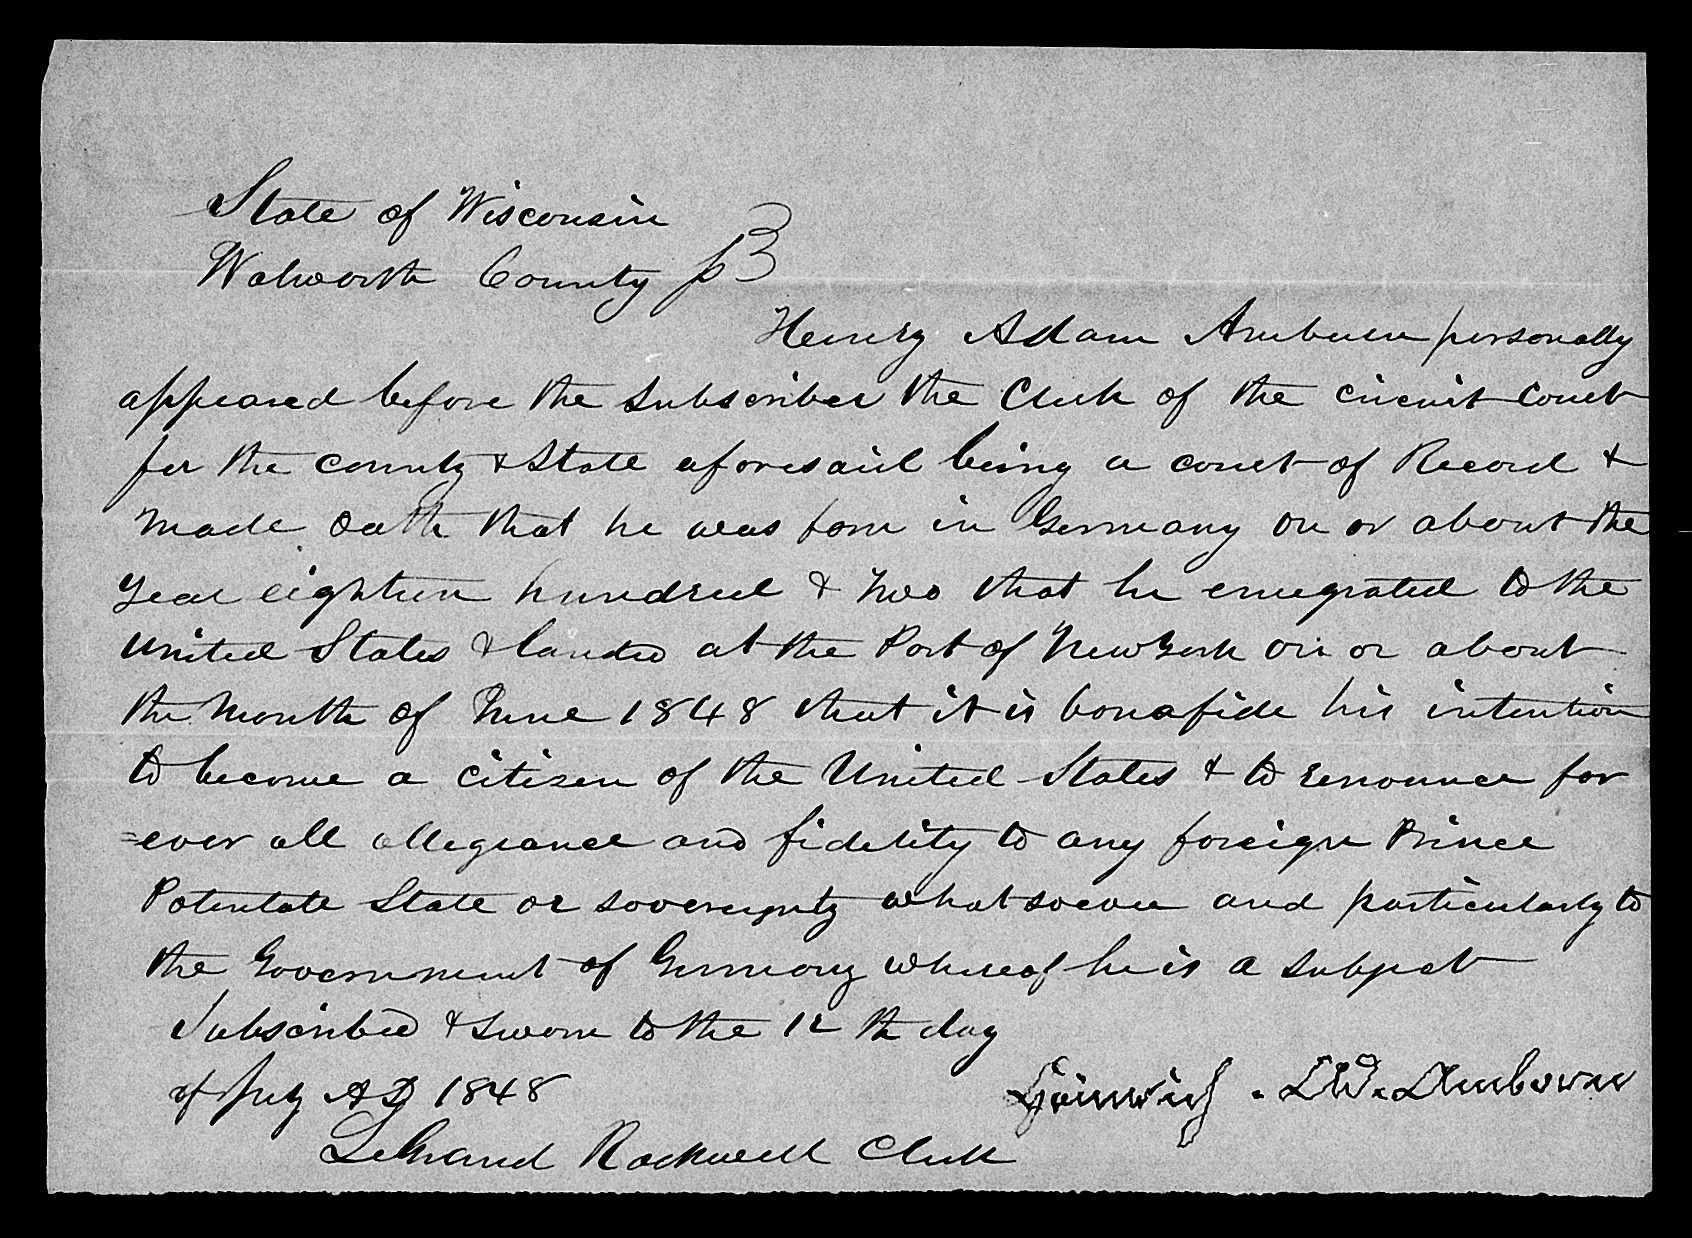 State of Wisconsin
Walworth County ss
Henry Adam Amburn personally
appeared before the subscriber the Clerk of the circuit court
for the county & State aforesaid being a court of Record &
made oath that he was born in Germany on or about the
year eighteen hundred & two that he emegrated to the
United States & landed at the Port of New York on or about
the Month of June 1848 that it is bonafide his intention
to become a citizen of the United States & to renounce for
=ever all allegiance and fidelity to any foreign Prince
Potentate State or sovereignty whatsoever and particularly to
the Government of Germany whereof he is a subject
Subscribed & sworn to the 12th day
of July AD 1848
LeGrand Rockwell Clerk